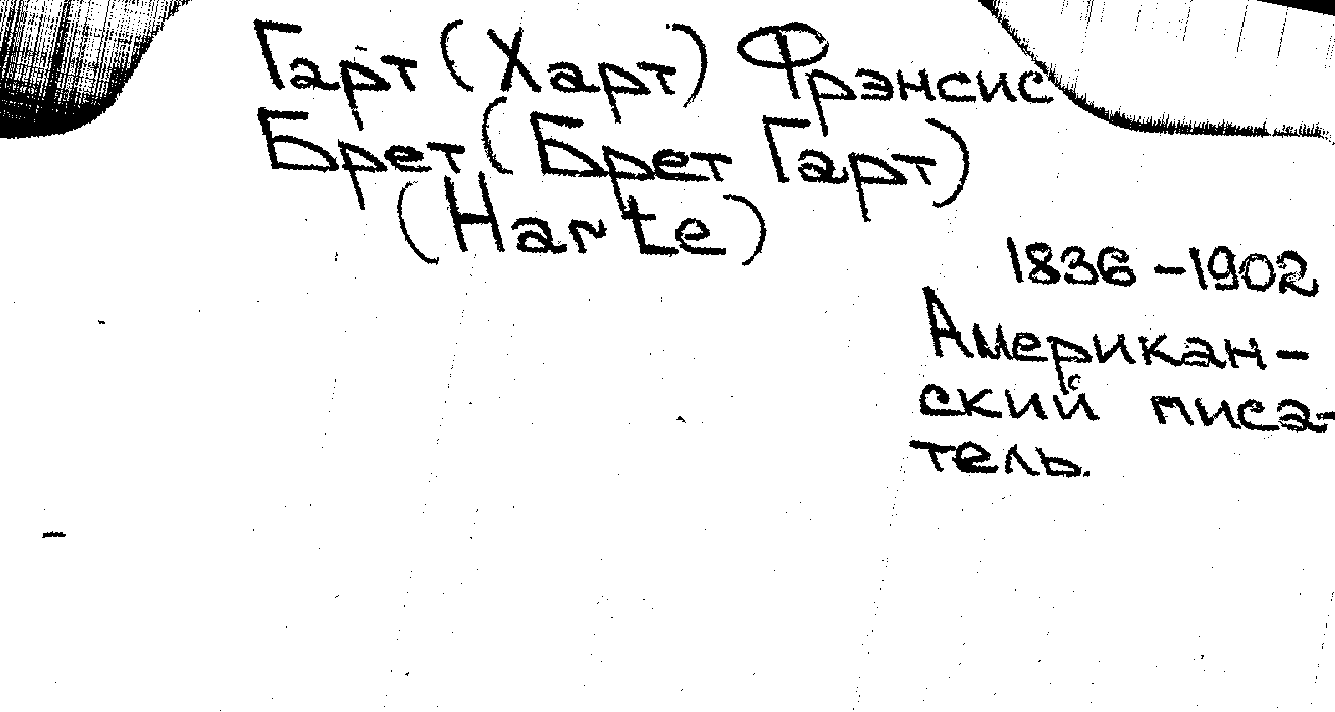 Гарт (Харт) Фрэнсис
Брет (Брет Гарт)
(Harte)
1836-1902
Американ-
ский писа-
тель.